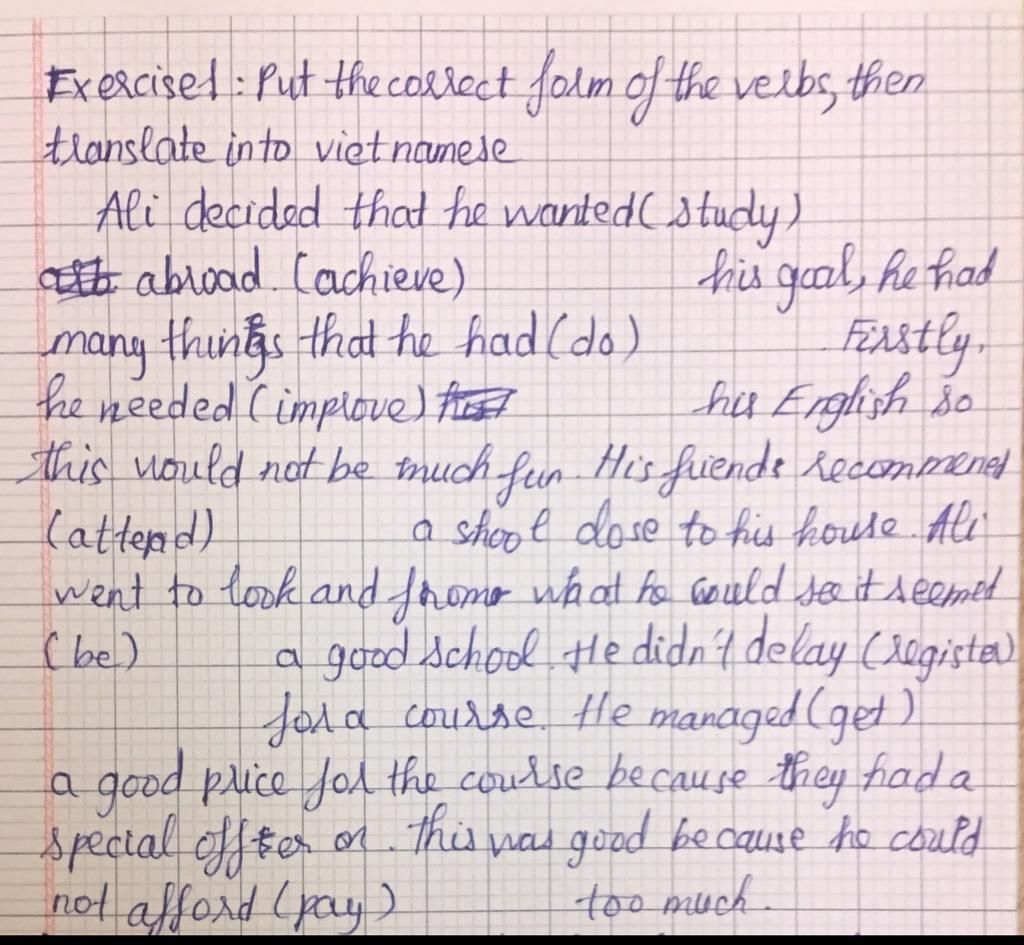 Exercise1: Put the correct form of the verbs, then
translate into vietnamese
Ali decided that he wanted (study)
abroad. (achieve) his goal, he had
many things that he had (do) Firstly,
he needed (improve) his English so
this would not be much fun. His friends recommened
(attend) a shool close to his house. Ali
went to look and from what he could see it seemed
(be) a good school. He didn't delay (register)
for a course. He managed (get)
a good price for the course because they had a
special offer on. This was good because he could
not afford (pay) too much.